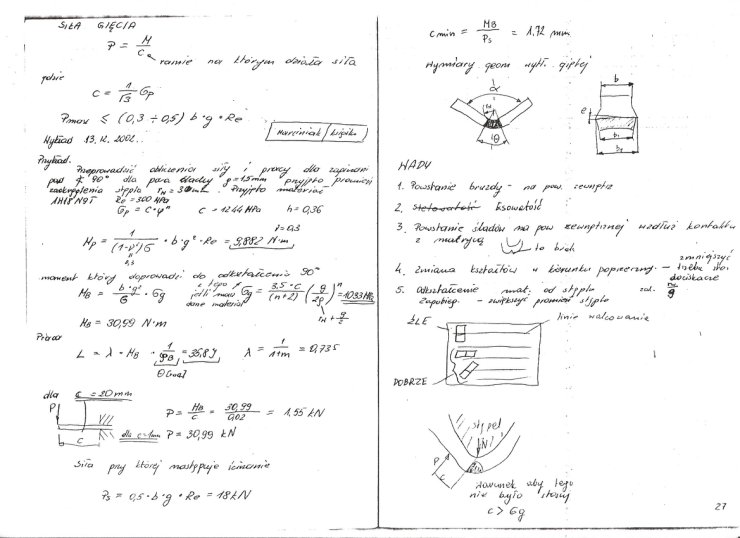 SIŁA GIĘCIA
P = M / c ramie na którym działa siła
gdzie
c = 1/√3 σp
Pmax ≤ (0,3 ÷ 0,5) b·g·Re
Marciniak
Wykład 13.12.2002.
Przykład.
Przeprowadzić obliczenia siły i pracy dla zaginania
pod ∡ 90° dla pasa blachy g=1,5mm przyjęto promień
zaokrąglenia stępla rM = 30mm. Przyjęto materiał
1H18N9T Re = 300 MPa
σp = C·φⁿ C = 1244 MPa n = 0,36
ν = 0,3
Mp = 1/((1-ν²)6) · b·g²·Re = 9,882 N·m
0,3
moment który doprowadzi do odkształcenia 90°
MB = b·g²/6 · σg
z tego
jeśli mamy
dane materiał
σg = 3,5·C/(n+2) (g/2ρ)ⁿ = 1033 MPa
rM + g/2
MB = 30,99 N·m
Praca
L = λ · MB · 1/φB = 35,8 J λ = 1/(1+n) = 0,735
dla c = 20mm
P = MB/c = 30,99/0,02 = 1,55 kN
P
c
dla c=1mm P = 30,99 kN
Siła przy której następuje ścinanie
Ps = 0,5·b·g·Re = 18kN
cmin = MB/Ps = 1,72 mm
Wymiary geom wytł. giętej
α
θ
b
e
b1
b2
WADY
1. Powstanie bruzdy - na pow. zewnętrz
2. Stetowatość łsowatość
3. Powstanie śladów na pow zewnętrznej wzdłuż kontaktu
z matrycą to brak
4. Zmiana kształtów w kierunku poprzeczny. – zmniejszyć
5. Odkształcenie mat. od stępla
Zapobieg. – zwiększyć promień stępla
ŹLE
linie walcowania
DOBRZE
stępel
N
P
c
warunek aby tego
nie było
c > 6g
27